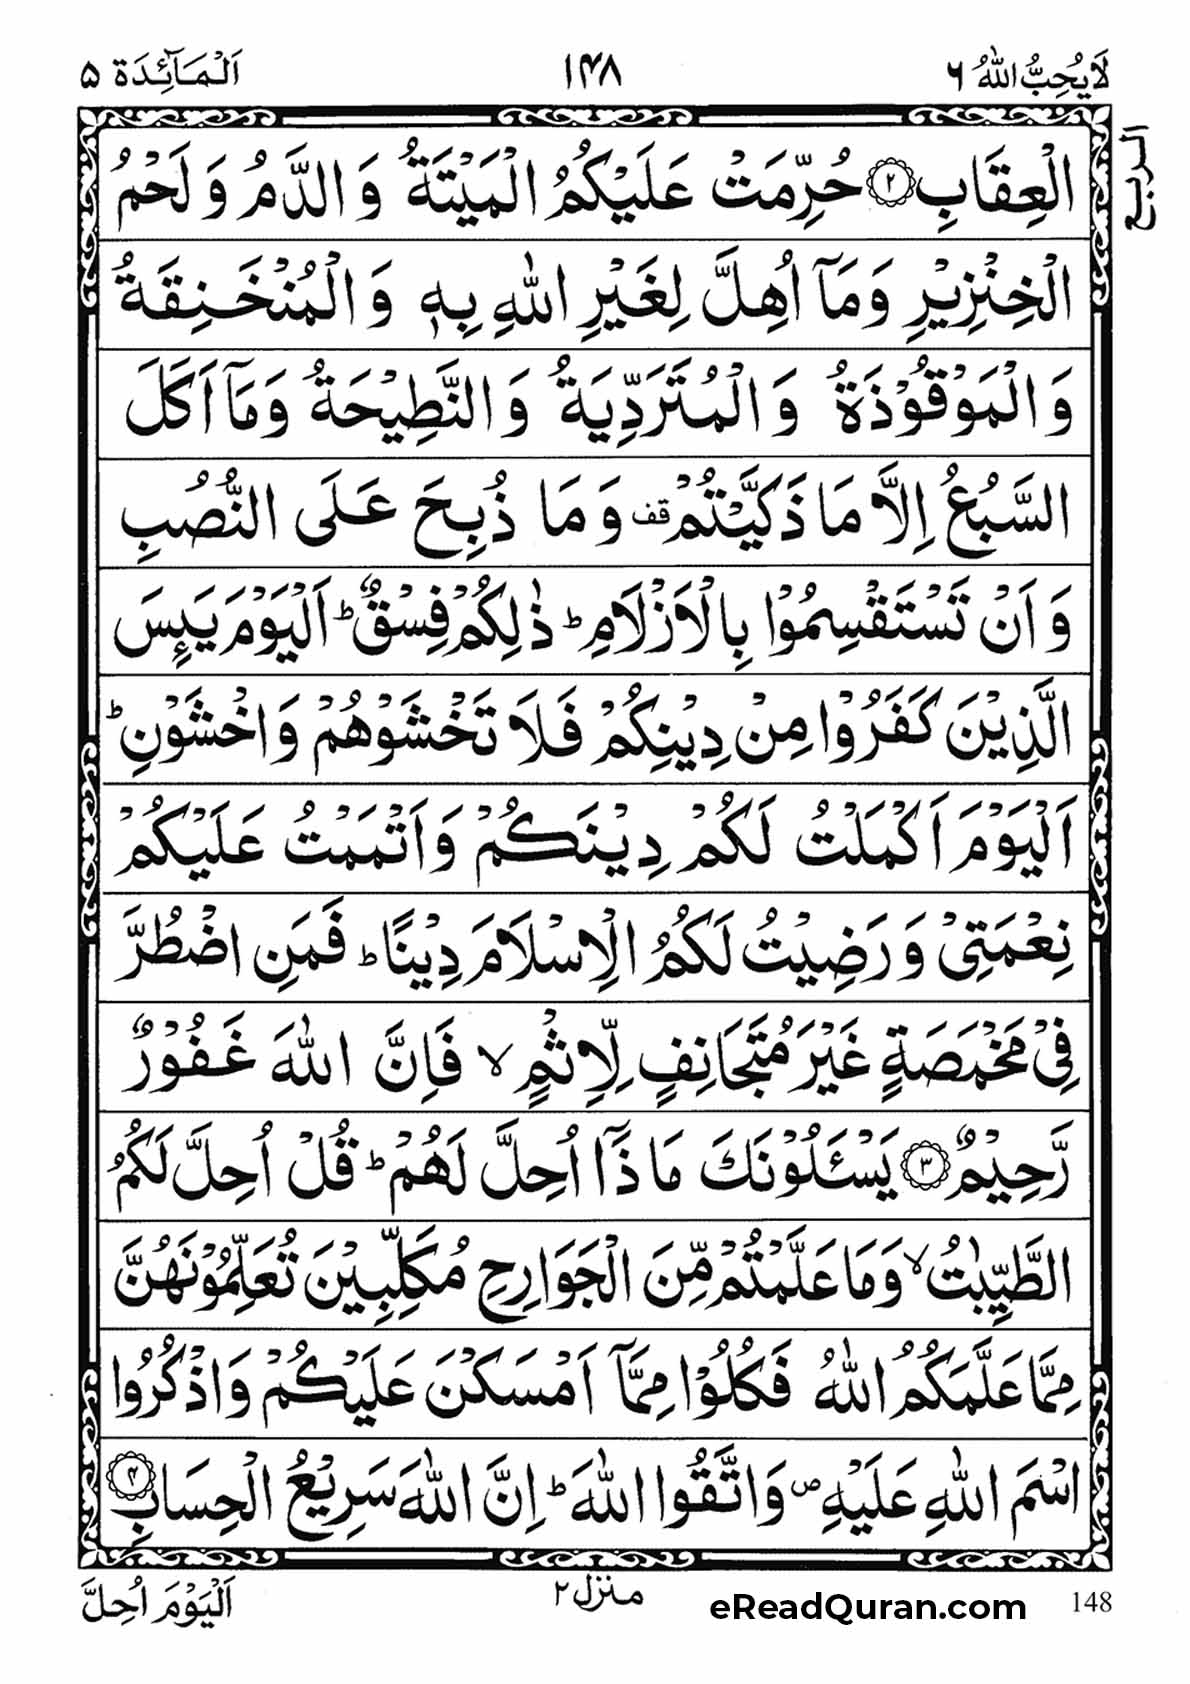 لَا يُحِبُّ اللّٰهُ ٦
١٤٨
اَلْمَآئِدَة ٥
الربع
الْعِقَابِ ۝٢ حُرِّمَتْ عَلَيْكُمُ الْمَيْتَةُ وَالدَّمُ وَلَحْمُ
الْخِنْزِيْرِ وَمَآ اُهِلَّ لِغَيْرِ اللّٰهِ بِهٖ وَالْمُنْخَنِقَةُ
وَالْمَوْقُوْذَةُ وَالْمُتَرَدِّيَةُ وَالنَّطِيْحَةُ وَمَآ اَكَلَ
السَّبُعُ اِلَّا مَا ذَكَّيْتُمْ قف وَمَا ذُبِحَ عَلَى النُّصُبِ
وَاَنْ تَسْتَقْسِمُوْا بِالْاَزْلَامِ ؕ ذٰلِكُمْ فِسْقٌ ؕ اَلْيَوْمَ يَئِسَ
الَّذِيْنَ كَفَرُوْا مِنْ دِيْنِكُمْ فَلَا تَخْشَوْهُمْ وَاخْشَوْنِ ؕ
اَلْيَوْمَ اَكْمَلْتُ لَكُمْ دِيْنَكُمْ وَاَتْمَمْتُ عَلَيْكُمْ
نِعْمَتِيْ وَرَضِيْتُ لَكُمُ الْاِسْلَامَ دِيْنًا ؕ فَمَنِ اضْطُرَّ
فِيْ مَخْمَصَةٍ غَيْرَ مُتَجَانِفٍ لِّاِثْمٍ ۙ فَاِنَّ اللّٰهَ غَفُوْرٌ
رَّحِيْمٌ ۝٣ يَسْـَٔلُوْنَكَ مَاذَآ اُحِلَّ لَهُمْ ؕ قُلْ اُحِلَّ لَكُمُ
الطَّيِّبٰتُ ۙ وَمَا عَلَّمْتُمْ مِّنَ الْجَوَارِحِ مُكَلِّبِيْنَ تُعَلِّمُوْنَهُنَّ
مِمَّا عَلَّمَكُمُ اللّٰهُ فَكُلُوْا مِمَّآ اَمْسَكْنَ عَلَيْكُمْ وَاذْكُرُوا
اسْمَ اللّٰهِ عَلَيْهِ ۖ وَاتَّقُوا اللّٰهَ ؕ اِنَّ اللّٰهَ سَرِيْعُ الْحِسَابِ ۝٤
اَلْيَوْمَ اُحِلَّ
منزل ٢
eReadQuran.com
148